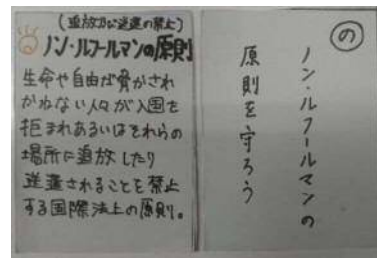 (追放及び送還の禁止)
ノン・ルフールマンの原則
生命や自由が脅かされ
かねない人々が入国を
拒まれあるいはそれらの
場所に追放したり
送還されることを禁止
する国際法上の原則。
の
ノン・ルフールマンの
原則を守ろう